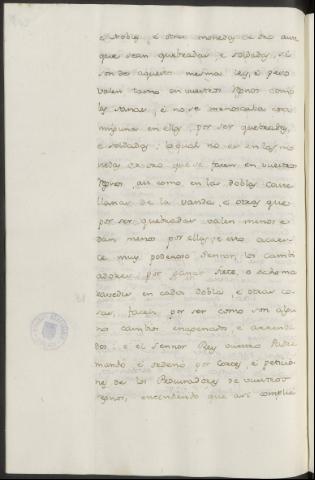 e nobles, e otras monedas de oro aun
que sean quebradas, e soldadas, si
son de aquesta mesma ley, e peso
valen tanto en vuestros Regnos como
las sanas, e no se menoscaba cosa
ninguna en ellas, por ser quebradas,
e soldadas, lo qual no es en las mo
nedas de oro que se facen en vuestros
Regnos, asi como en las doblas caste
llanas de la vanda, e otras que
por ser quebradas valen menos e
dan menos por ellas, e esto acaes-
ce muy poderoso Sennor, los cambi
adores por ganar siete, o ocho ma
ravedis en cada dobla, e otras co
sas, facen por ser como son algu
nos cambios enagenados, e arrenda
dos, e el Sennor Rey vuestro Padre
mandó e ordenó por Cortes, e peticio
nes de los Procuradores de vuestros
Regnos, entendiendo que asi complie